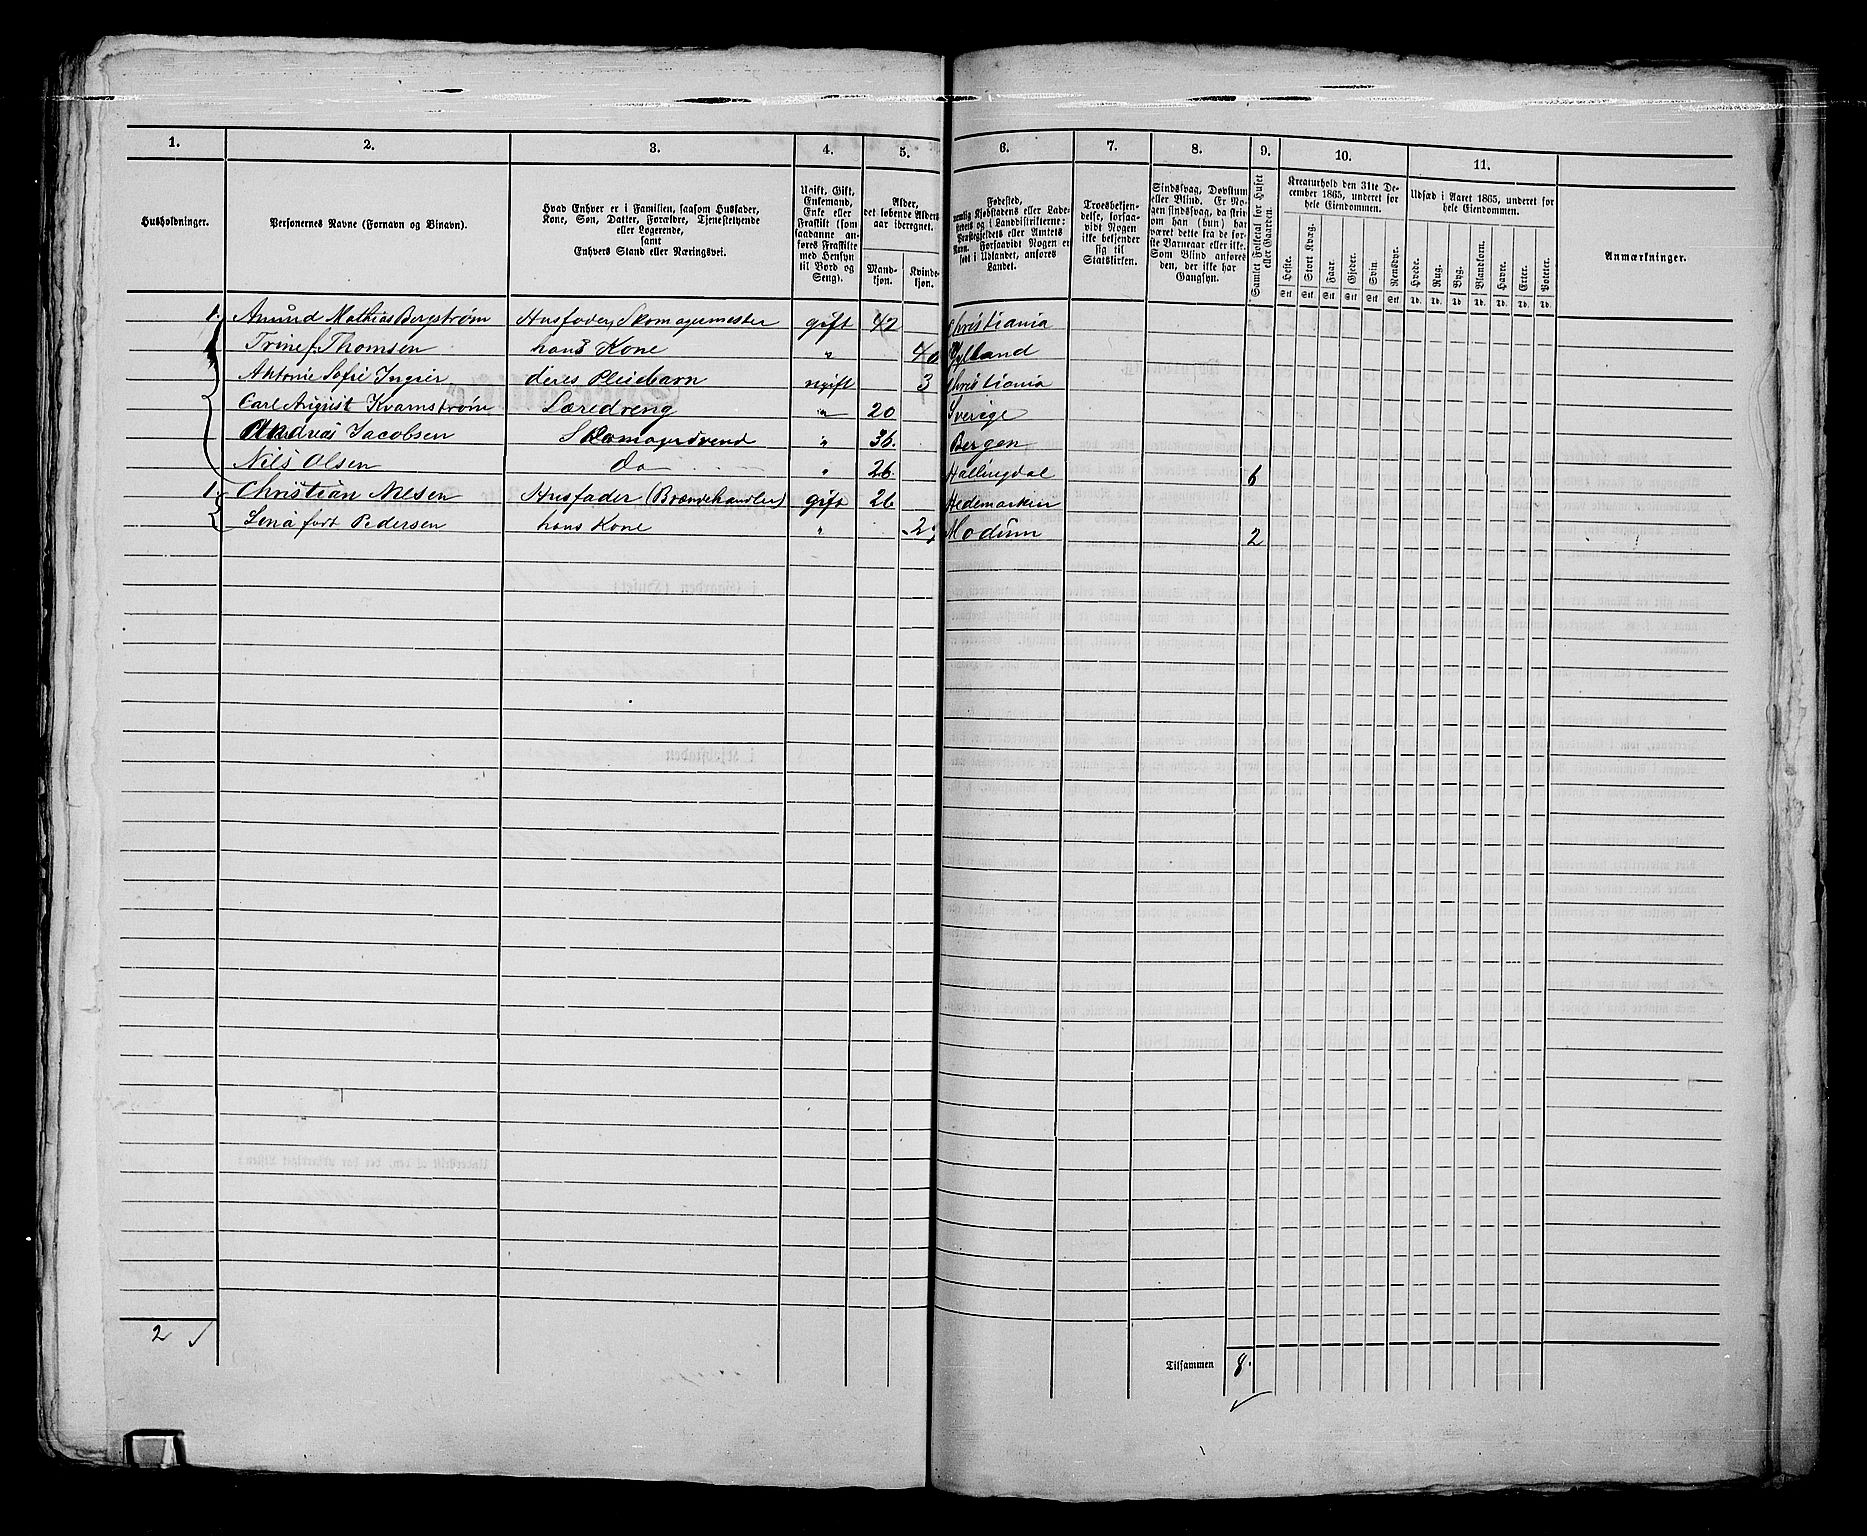 1. 2. 3. 4. 5. 6. 7. 8. 9. 10. 11.
Husholdninger.
Personernes Navne (Fornavn og Binavn).
Hvad Enhver er i Familien, saasom Husfader,
Kone, Søn, Datter, Forældre, Tjenestetyende
eller Logerende,
samt
Enhvers Stand eller Næringsvei.
Ugift, Gift,
Enkemand,
Enke eller
Fraskilt (som
saadanne an-
føres Fraskilte
med Hensyn
til Bord og
Seng).
Alder,
det løbende Alders-
aar iberegnet.
Mand-
kjøn.
Kvinde-
kjøn.
Fødested,
nemlig Kjøbstadens eller Lade-
stedets og i Landdistrikterne:
Præstegjeldets eller Amtets
Navn. Forsaavidt Nogen er
født i Udlandet, anføres
Landet.
Troesbekjen-
delse, forsaa-
vidt Nogen
ikke bekjender
sig til
Statskirken.
Sindssvag, Døvstum
eller Blind. Er No-
gen sindssvag, da skriv
om han (hun) har
været dette fra de før-
ste Barneaar eller ikke.
Som Blind anføres
den, der ikke har
Gangsyn.
Samlet Folketal for Huset
eller Gaarden.
Kreaturhold den 31te De-
cember 1865, underet for
hele Eiendommen.
Heste. Stort Kvæg. Faar. Gjeder. Svin. Rensdyr.
Stk. Stk. Stk. Stk. Stk. Stk.
Udsæd i Aaret 1865, underet for
hele Eiendommen.
Hvede. Rug. Byg. Blandkorn. Havre. Erter. Poteter.
Td. Td. Td. Td. Td. Td. Td.
Anmærkninger.
1. Amund Mathias Bergstrøm Husfader, Skomagermester gift 42 Christiania
Trine f. Thomsen hans Kone " 40 Jylland
Antonie Sofie Ingier deres Pleiebarn ugift 3 Christiania
Carl August Kvarnstrøm Læredreng " 20 Sverige
Andreas Jacobsen Skomagersvend " 36. Bergen
Nils Olsen do " 26. Hallingdal 6
1. Christian Nilsen Husfader (Brændehandler) gift 26 Hedemarken
Lena født Pedersen hans Kone " 27 Modum 2
2
Tilsammen 8.